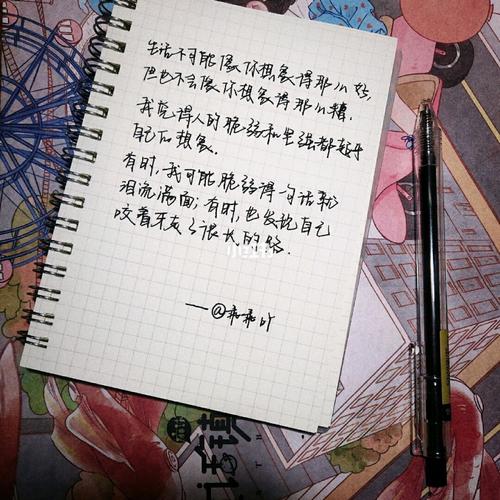 生活不可能像你想象得那么好,
但也不会像你想象得那么糟.
我觉得人的脆弱和坚强都超乎
自己的想象.
有时,我可能脆弱得一句话就
泪流满面;有时,也发现自己
咬着牙走了很长的路.
——@乖乖吖
小红书